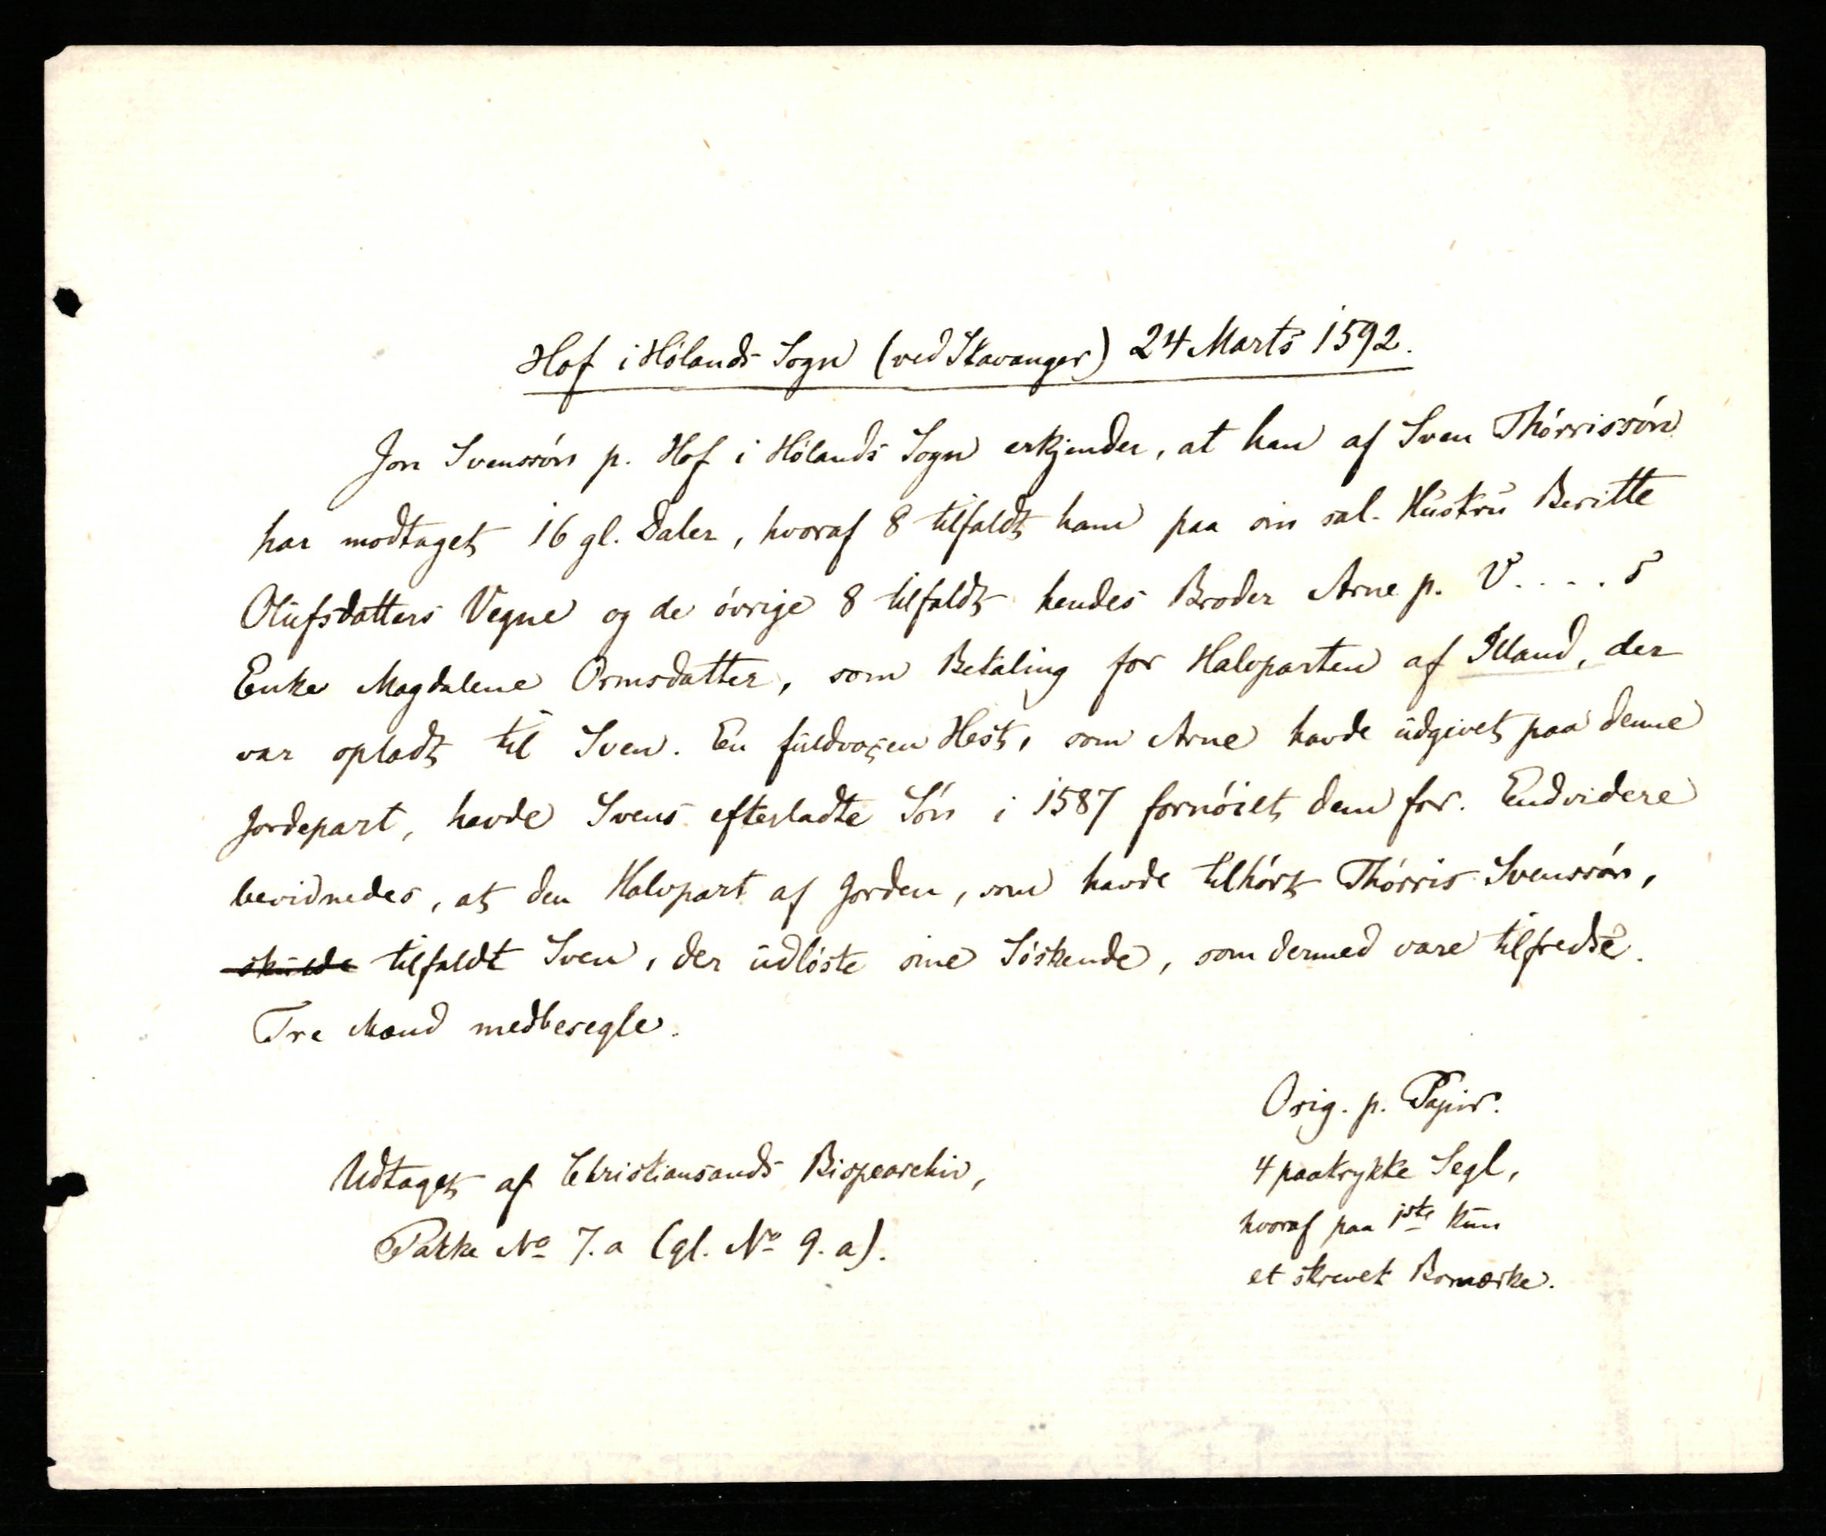 Hof i Hölands Sogn (ved Stavanger) 24 Marts 1592.
Jon Svenssön p. Hof i Hölands Sogn erkjender, at han af Sven Thörrissön
har modtaget 16 gl. Daler, hvoraf 8 tilfaldt ham paa sin sal. Hustru Beritte
Olufsdatters Vegne og de övrige 8 tilfaldt hendes Broder Arne p. V.....s
Enke Magdalene Ormsdatter, som Betaling for Halvparten af Illand, der
var opladt til Sven. En fuldvoxen Hest, som Arne havde udgivet paa denne
Jordepart, havde Svens efterladte Sön i 1587 fornöiet dem for. Endvidere
bevidnedes, at den Halvpart af Jorden, som havde tilhört Thörris Svenssön,
skulde tilfaldt Sven, der udlöste sine Söskende, som dermed vare tilfredse.
Tre Mænd medbesegle.
Orig. p. Papir.
4 paatrykke Segl,
hvoraf paa 1ste kun
et skrevet Bomærke.
Udtaget af Christiansands Bispearchiv,
Pakke No 7.a (gl. No 9.a).